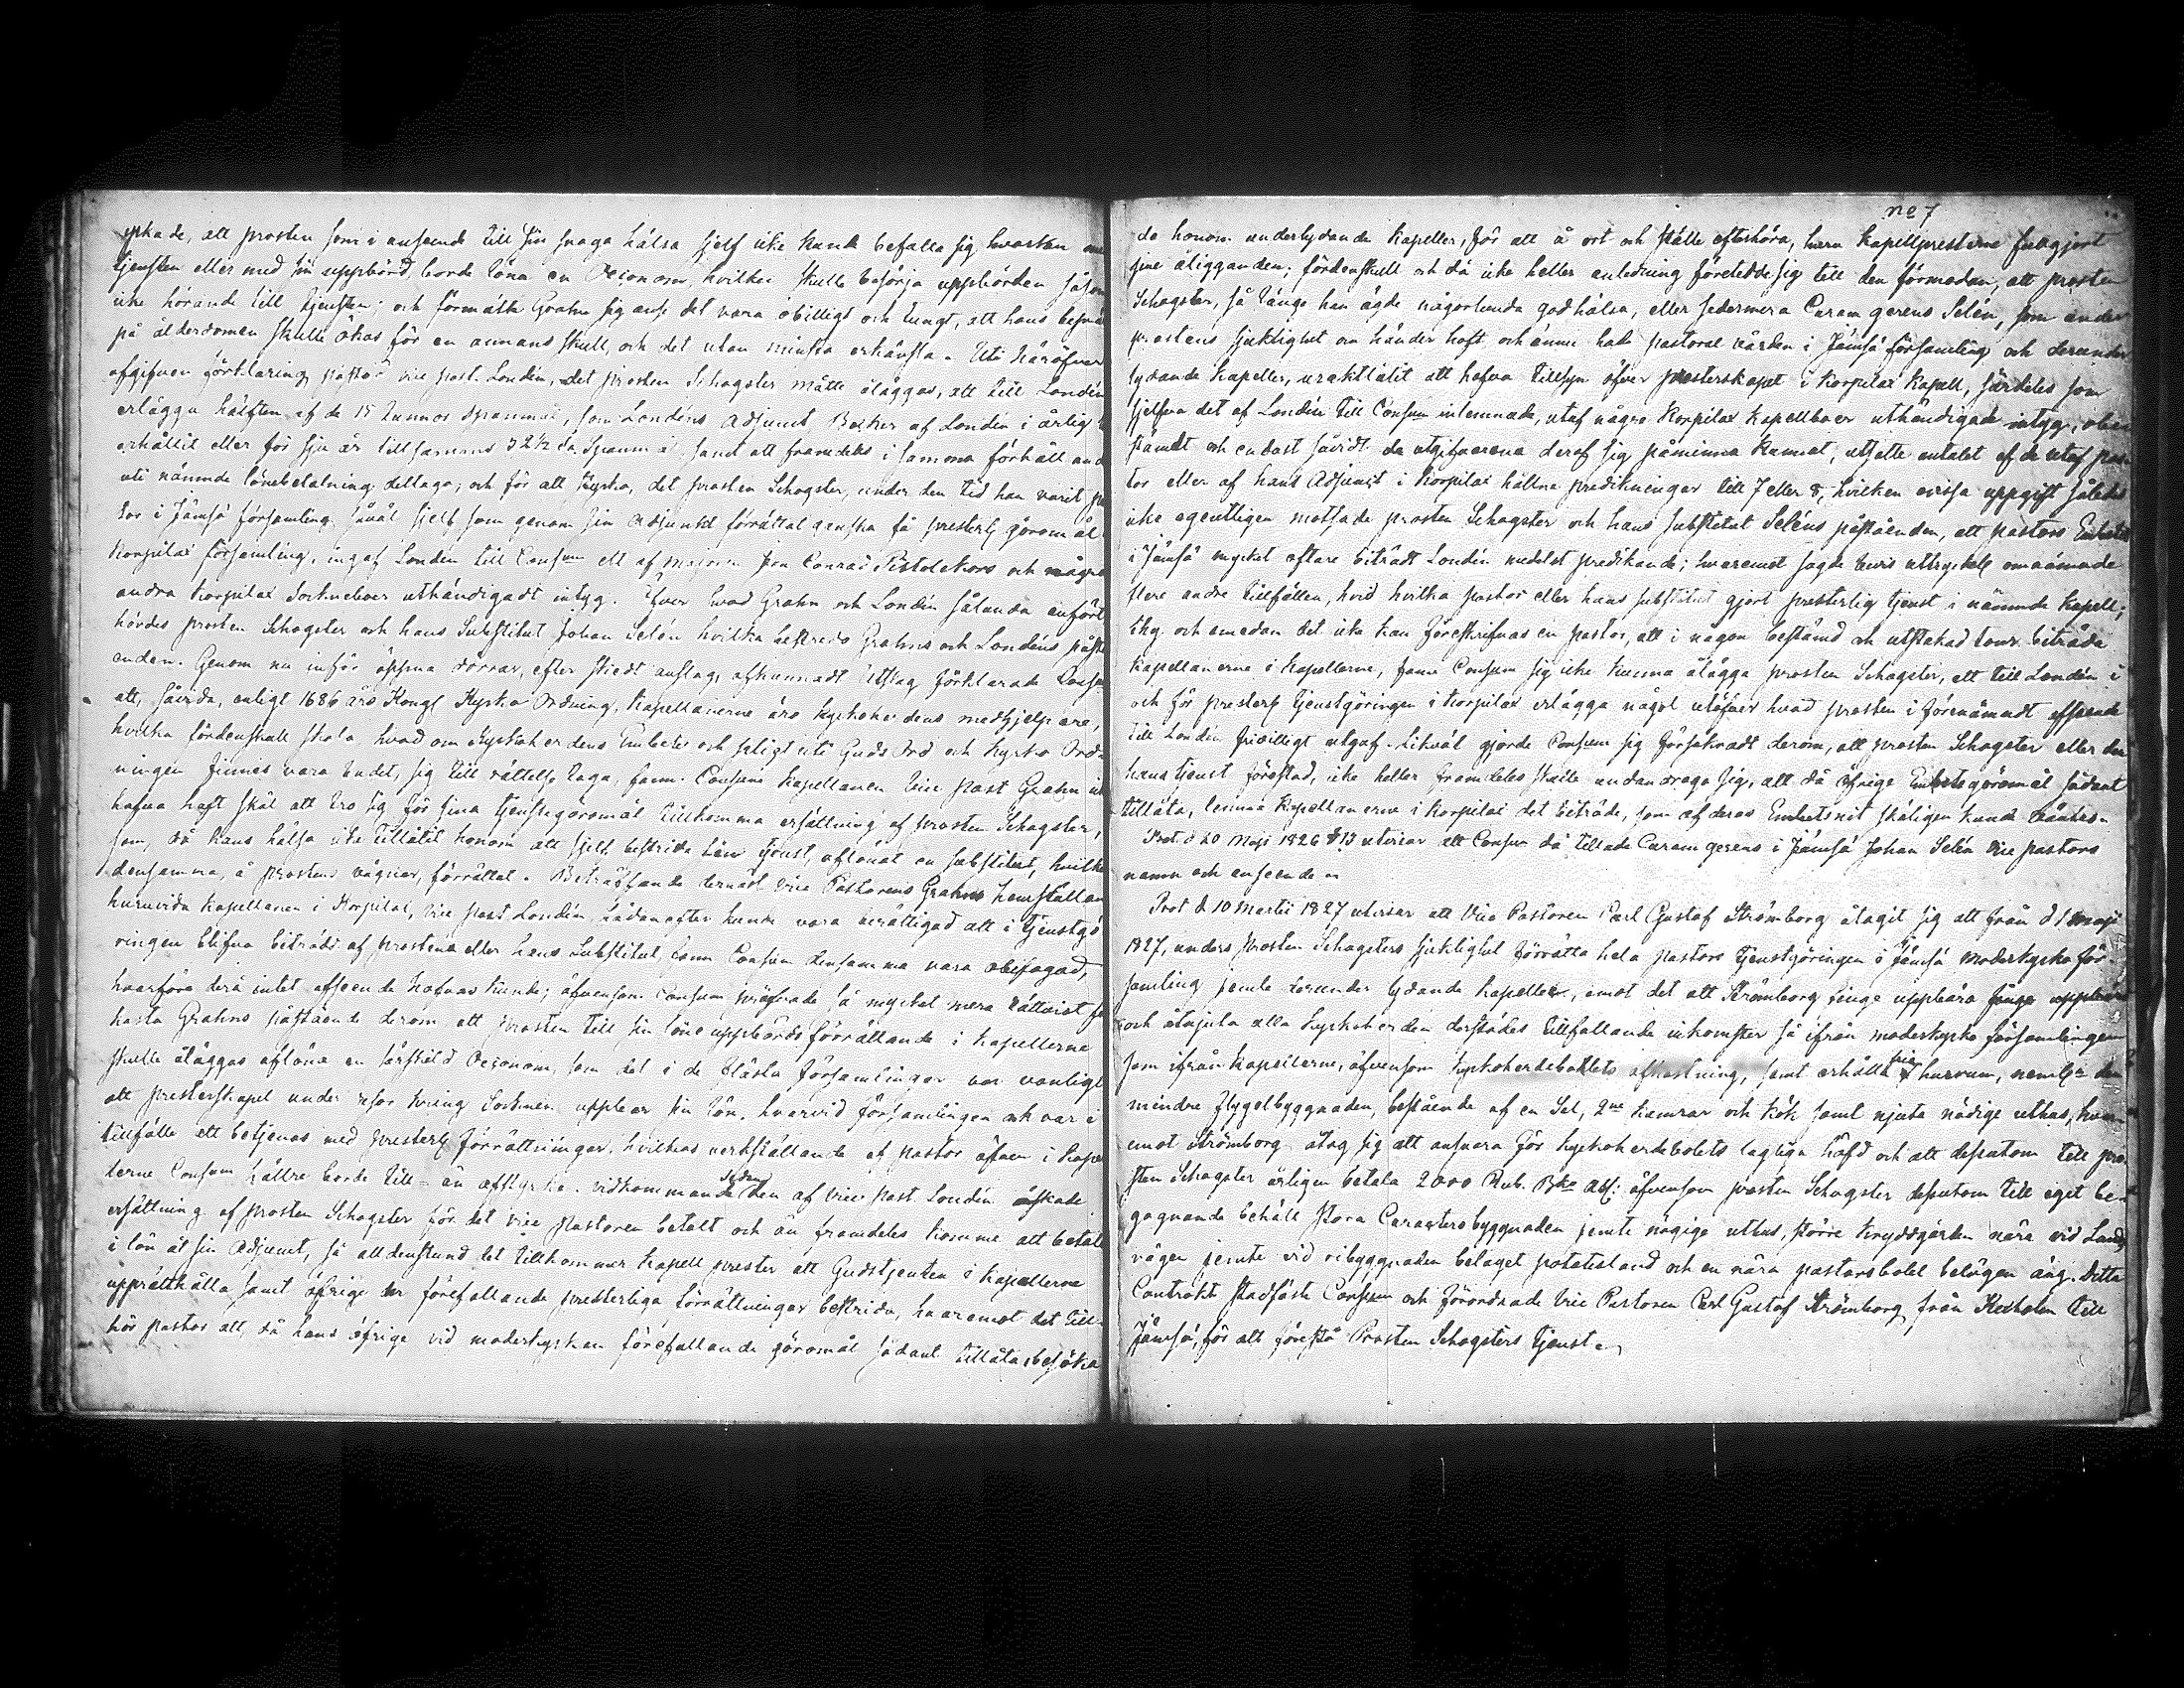 yrkade, att prosten som i anseende till sin svaga hälsa sjelf icke kunde befatta sig hvarken med
tjensten eller med sin uppbörd, borde löna en Oeconom, hvilken skulle besörja uppbörden såsom
icke hörande till tjensten; och förmätte Grahn sig anse det vara obilligt och tungt, att hans besvär
på ålderdomen skulle ökas för en annans skull, och det utan minsta erkänsla. Uti häröfver
afgifven förklaring påstod vice past. Londén, det prosten Schogster måtte åläggas, att till Londén
erlägga hälften af de 15 tunnor spannmål, som Londéns Adjunct Becker af Londén i årlig
erhållit eller för sju år tillsammans 52½ d:o Spanmål, samt att framdeles i samma förhållande
uti nämnde lönebetalning deltaga; och för att styrka, det prosten Schogster, under den tid han varit pas
tor i Jämsä församling, såväl sjelf som genom sin Adjunkt förrättat ganska få presterl. göromål i
Korpilax församling, ingaf Londén till Consum ett af Majoren Jon Conrad Pistolekors och några
andra Korpilax Sockneboer uthändigadt intyg. Öfver hvad Grahn och Londén sålunda anfört
hördes prosten Schogster och hans Substitut Johan Selén hvilka bestredo Grahns och Londéns påstå
enden. Genom nu inför öppna dörrar, efter skedt anslag, afkunnadt Utslag förklarade Consum
att, såvida, enligt 1686 års Kongl Kyrko Ordning, Kapellanerne äro kyrkoherdens medhjelpare,
hvilka fördenskull skola, hvad om Kyrkoherdens Embete och pligt uti Guds Ord och Kyrko Ord-
ningen finnes vara budet, sig till rättelse taga, fann Consum Kapellanen Vice Past Grahn ick
hafva haft skäl att tro sig för sina tjenstgöromål tillkomma ersättning af prosten Schogster,
som, då hans hälsa icke tillåtit honom att sjelf bestrida sin tjenst, aflönat en substitut, hvilken
densamma, å prostens vägnar, förrättat. Beträffande dernäst Vice Pastorens Grahns hemställan
huruvida Kapellanen i Korpilax, Vice past Londén, hädanefter kunde vara berättigad att i tjenstgö
ringen blifva biträdd af prosten eller hans Substitut, fann Consum densamma vara obefogad,
hvarföre derå intet afseende hafvas kunde; äfvensom Consum pröfvade så mycket mera rättvist för
kasta Grahns påstående derom att prosten till sin löneuppbörds förrättande i kapellerne
skulle åläggas aflöna en särskild Oeconom, som det i de flästa församlingar var vanligt
att presterskapet under resor kring Socknen uppbar sin lön, hvarvid församlingen ock var i
tillfälle att betjenas med presterl. förrättningar, hvilkas verkställande af pastor äfven i kapel
lerne Consum hällre borde till- än afstyrka. Vidkommande sedan den af Vice past. Londén äskade
ersättning af prosten Schogster för det Vice Pastoren betalt och än framdeles komme att betala
i lön åt sin Adjunct, så alldenstund det tillkommer Kapell prester att Gudstjensten i kapellerne
upprätthålla samt öfrige der förefallande presterliga förrättningar bestrida, hvaremot det till-
hör pastor att, då hans öfrige vid moderkyrkan förefallande göromål sådant tillåta, besöka
no 7
de honom underlydande Kapeller, för att å ort och ställe efterhöra, huru Kapellpresterne fullgjort
sine åligganden; fördenskull och då icke heller anledning företedde sig till den förmodan, att prosten
Schogster, så länge han ägde någorlunda god hälsa, eller sedermera Curam gerens Selén, som under
prostens sjuklighet om händer haft och ännu hade pastoral vården i Jämsä församling och derunder
lydande Kapeller, uraktlåtit att hafva tillsyn öfver presterskapet i Korpilax Kapell, särdeles som
sjelfva det af Londén till Consum inlemnade, utaf några Korpilax Kapellboer uthändigade intyg, obe
stämdt och endast såvidt de utgifvarena deraf sig påminna kunnat, utsatte antalet af de utaf pas-
tor eller af hans Adjunct i Korpilax hållna predikningar till 7 eller 8, hvilken ovissa uppgift således
icke egentligen motsade prosten Schogster och hans substitut Seléns påståenden, att pastors Embetet
i Jämsä mycket oftare biträdt Londén medelst predikande; hvaremot sagde bevis uttryckel. omnämnde
flere andre tillfällen, hvid hvilka pastor eller hans substitut gjort presterlig tjenst i nämnde Kapell;
thy och emedan det icke kan föreskrifvas en pastor, att i någon bestämd och utstakad tour biträda
Kapellanerne i Kapellerne, fann Consum sig icke kunna ålägga prosten Schogster, att till Londén i
och för presterl. tjenstgöringen i Korpilax erlägga något utöfver hvad prosten i förenämndt afseende
till Londén frivilligt utgaf. Likväl gjorde Consum sig försäkradt derom, att prosten Schogster eller den
hans tjenst förestod, icke heller framdeles skulle undandraga sig, att då öfrige Embetsgöromål sådant
tilläto, lemna Kapellanerne i Korpilax det biträde, som af deras Embetsnit skäligen kunde väntas.
Prot. d 20 Maji 1826 § 13 utvisar att Consum då tillade Curam gerens i Jämsä Johan Selén Vice pastors
namn och anseende.
Prot d 10 Martii 1827 utvisar att Vice Pastoren Carl Gustaf Strömborg åtagit sig att från d 1 Maji
1827, under Prosten Schogsters sjuklighet förrätta hela pastors tjenstgöringen i Jämsä Moderkyrko för-
samling jemte derunder lydande Kapeller, emot det att Strömborg finge uppbära finge uppbära
och åtnjuta alla Kyrkoherden derstädes tillfallande inkomster så ifrån moderkyrko församlingen
som ifrån Kapellerne, äfvensom Kyrkoherdebohlets afkastning, samt erhålla fria husrum, neml. den
mindre flygelbyggnaden, bestående af en Sal, 2ne kamrar och kök samt njuta nödige uthus, hvar
emot Strömborg åtog sig att ansvara för Kyrkoherdebolets lagliga häfd och att desutom till pro-
sten Schogster årligen betala 2000 Rub. Bco Ass: äfvensom prosten Schogster desutom till eget be-
gagnande behåll stora Caractersbyggnaden jemte nögige uthus, större Kryddgården nära vid Lands
vägen jemte vid ribyggnaden beläget potatisland och en nära pastorsbolet belägen äng. Detta
Contrakt stadfäste Consum och förordnade Vice Pastoren Carl Gustaf Strömborg från Kexholm till
Jämsä, för att förestå Prosten Schogsters tjenst.